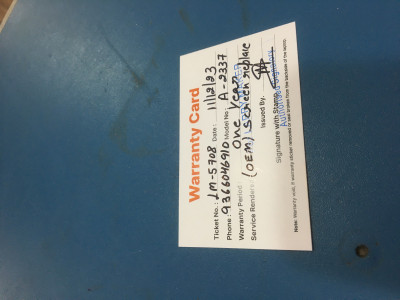 Warranty Card
Ticket No.: LM-5708 Date: 11/12/23
Phone: 9366046910 Model No.: A-2337
Warranty Period: One Year
Service Renders: (OEM) Screen replace
Issued By.
Signature with Stamp
Authorised Signatory
Note: Warranty void, if warranty sticker removed or seal broken from the backside of the laptop.